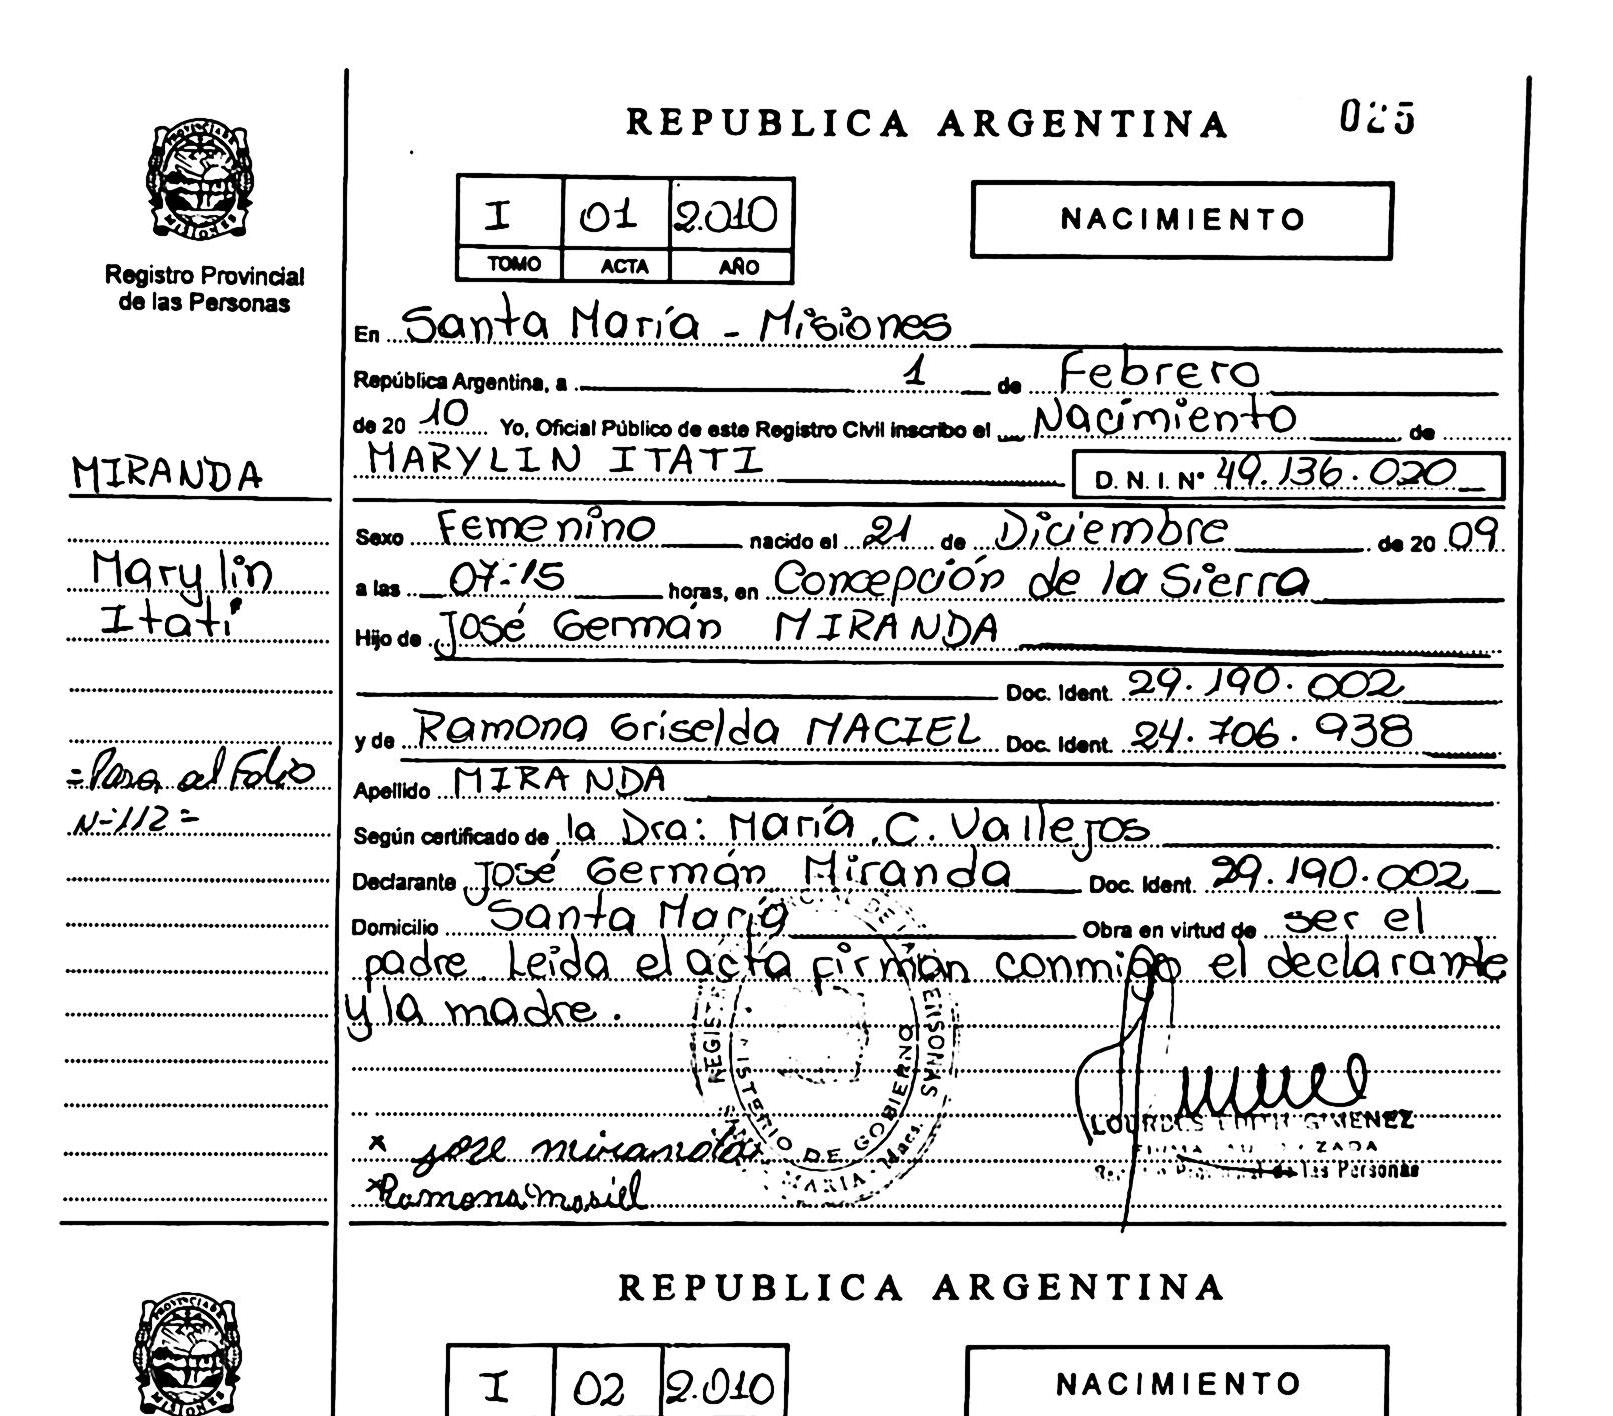 REPUBLICA ARGENTINA
PROVINCIA DE MISIONES
Registro Provincial
de las Personas
I 01 2.010
TOMO ACTA AÑO
NACIMIENTO
En Santa María - Misiones
República Argentina, a 1 de Febrero
de 20 10 Yo, Oficial Público de este Registro Civil inscribo el Nacimiento de
MARYLIN ITATI D. N. I. Nº 49.136.020
MIRANDA
Marylin
Itatí
Sexo Femenino nacido el 21 de Diciembre de 20 09
a las 07:15 horas, en Concepción de la Sierra
Hijo de José Germán MIRANDA
Doc. Ident. 29.190.002
y de Ramona Griselda MACIEL Doc. Ident. 24.706.938
=Pasa al Folio
Nº 112=
Apellido MIRANDA
Según certificado de la Dra: María C. Vallejos
Declarante José Germán Miranda Doc. Ident. 29.190.002
Domicilio Santa María Obra en virtud de ser el
padre. Leida el acta firman conmigo el declarante
y la madre.
MINISTERIO DE GOBIERNO
LOURDES EDITH GIMENEZ
de las Personas
x jose miranda
x Ramona masiel
REPUBLICA ARGENTINA
PROVINCIA DE MISIONES
I 02 2.010
NACIMIENTO